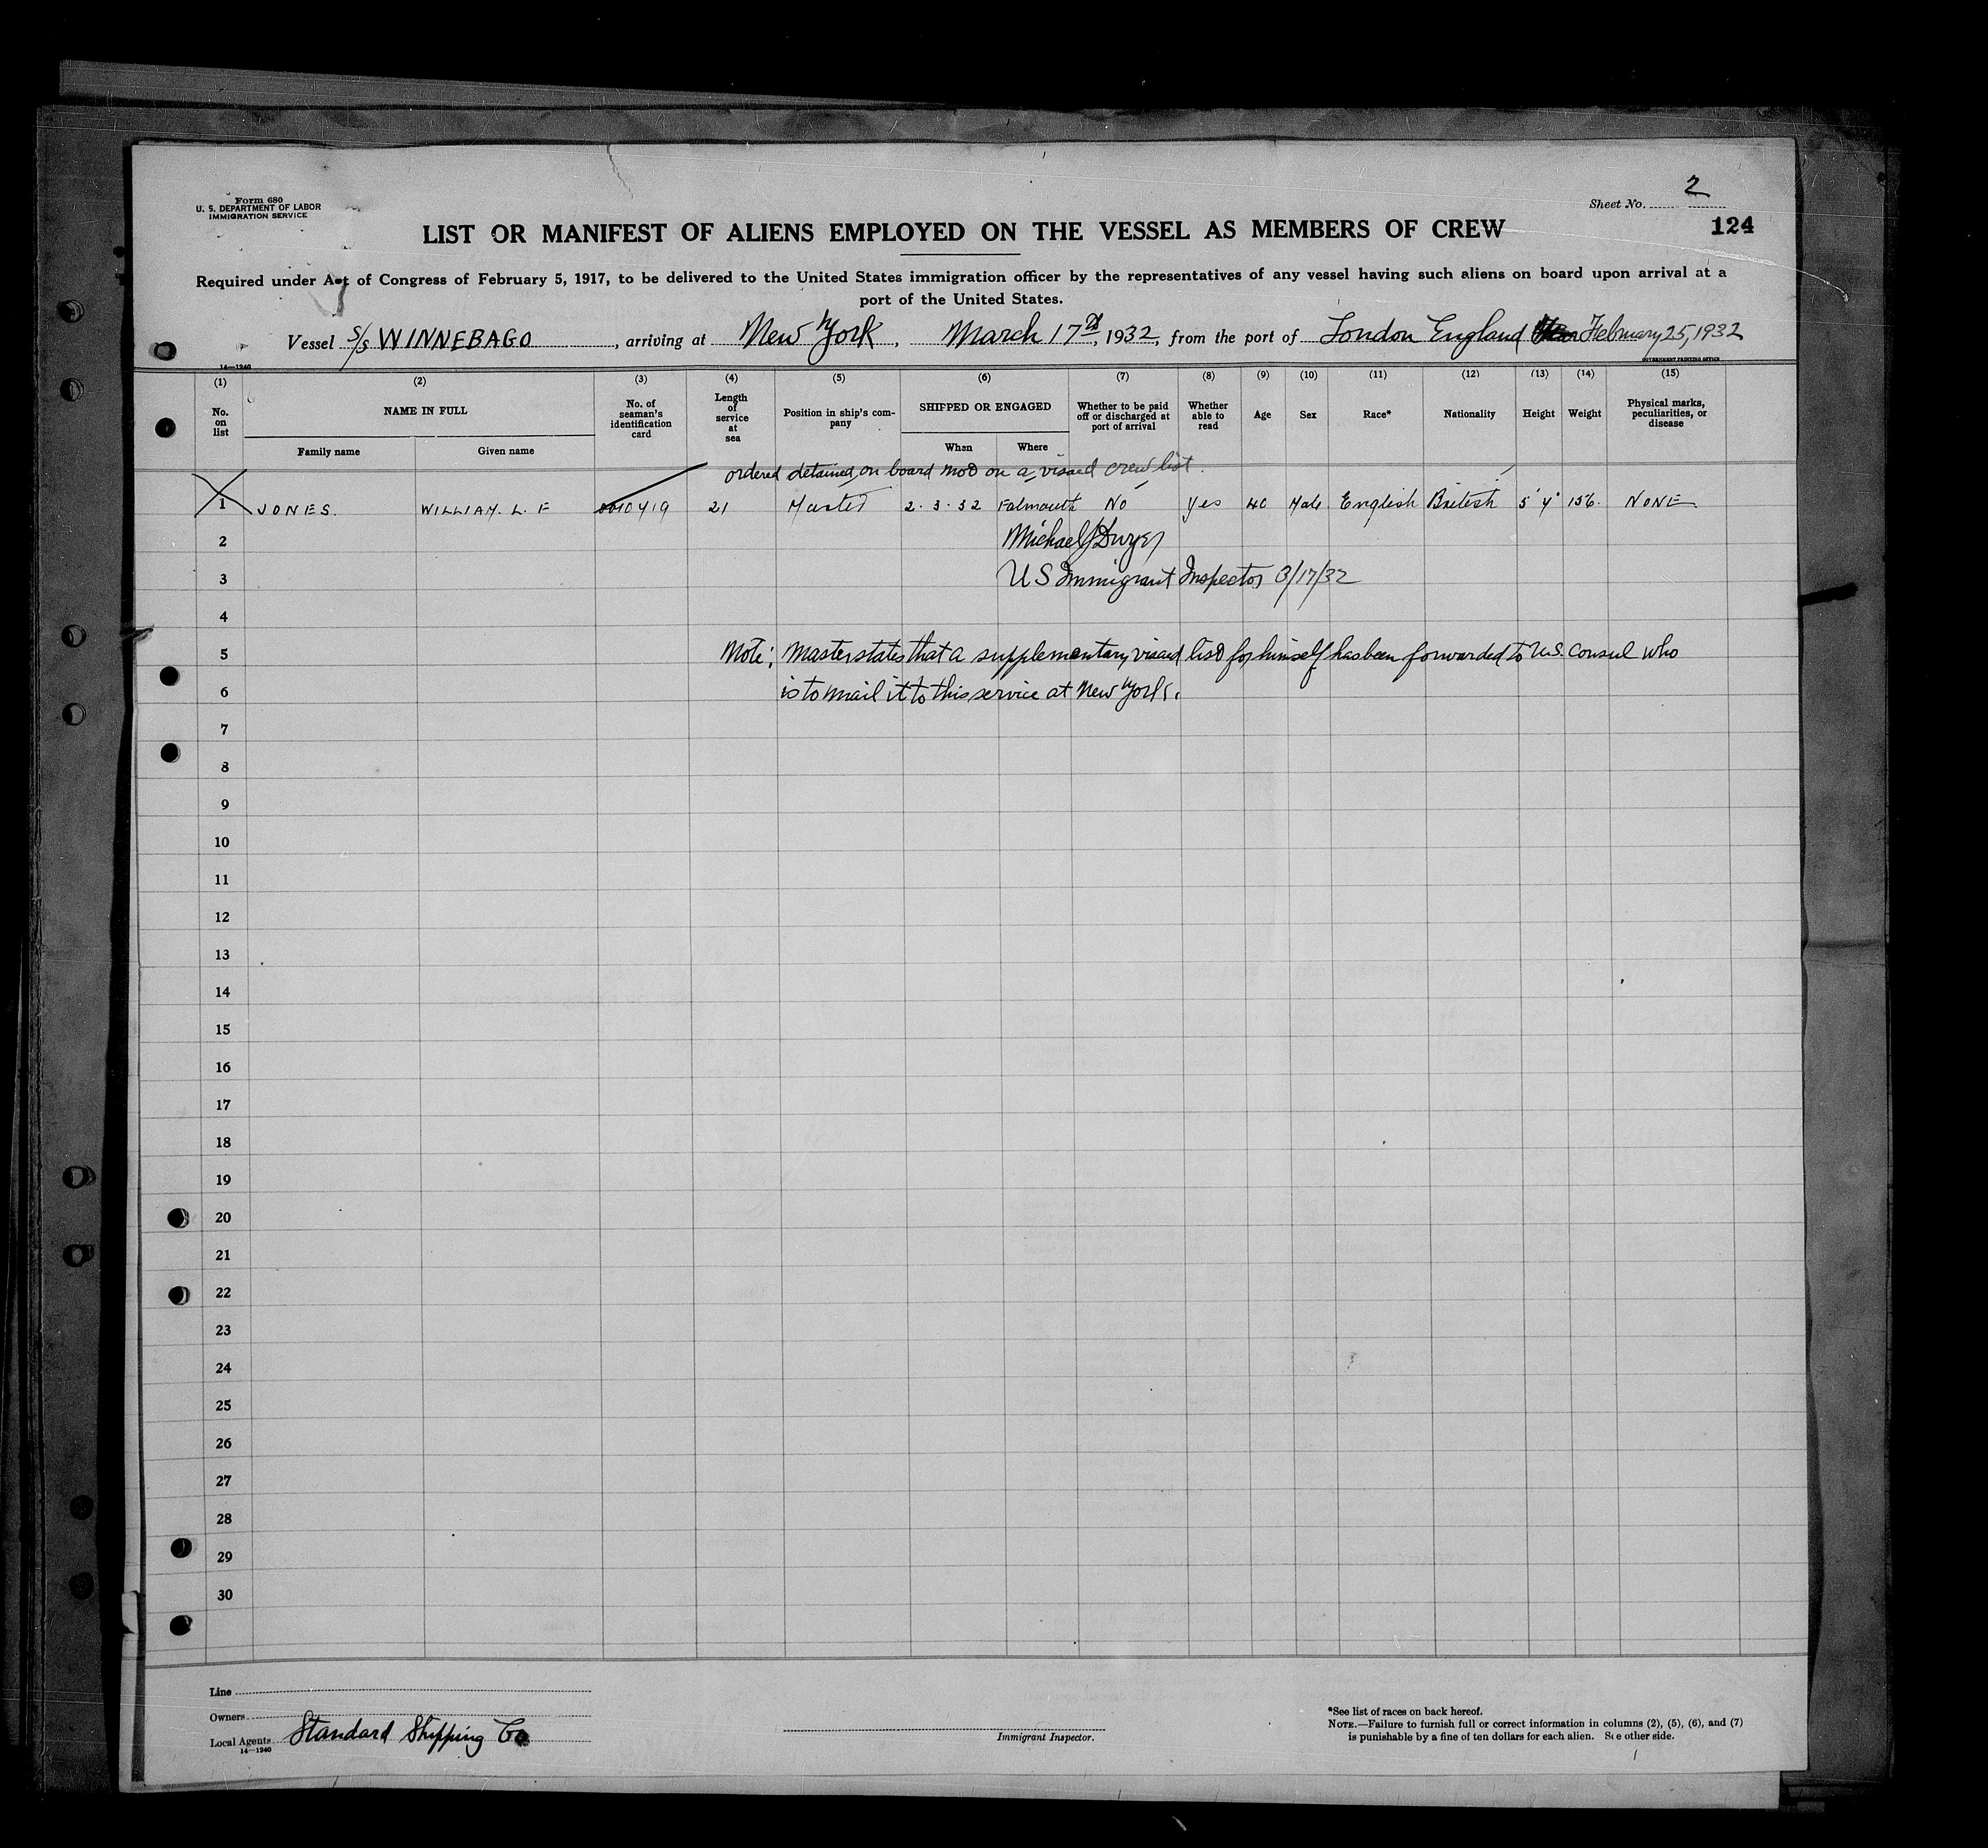 Form 680
U. S. DEPARTMENT OF LABOR
IMMIGRATION SERVICE
Sheet No. 2
124
LIST OR MANIFEST OF ALIENS EMPLOYED ON THE VESSEL AS MEMBERS OF CREW
Required under Act of Congress of February 5, 1917, to be delivered to the United States immigration officer by the representatives of any vessel having such aliens on board upon arrival at a
port of the United States.
Vessel S/S WINNEBAGO, arriving at New York, March 17th, 1932, from the port of London England February 25, 1932
14—1240
GOVERNMENT PRINTING OFFICE
(1) (2) (3) (4) (5) (6) (7) (8) (9) (10) (11) (12) (13) (14) (15)
No. on list NAME IN FULL No. of seaman's identification card Length of service at sea Position in ship's company SHIPPED OR ENGAGED Whether to be paid off or discharged at port of arrival Whether able to read Age Sex Race* Nationality Height Weight Physical marks, peculiarities, or disease
Family name Given name When Where
ordered detained on board not on a visaed crew list.
1 JONES. WILLIAM. L. F 21 Master 2. 3. 32 Falmouth No Yes 40 Male English British 5' 4" 156. NONE
2 Michael J Dwyer
3 US Immigrant Inspector 3/17/32
4
5 Note; Master states that a supplementary visaed list for himself has been forwarded to U.S. Consul who
6 is to mail it to this service at New York.
7
8
9
10
11
12
13
14
15
16
17
18
19
20
21
22
23
24
25
26
27
28
29
30
Line
Owners
Local Agents Standard Shipping Co
14—1240
Immigrant Inspector.
*See list of races on back hereof.
NOTE.—Failure to furnish full or correct information in columns (2), (5), (6), and (7)
is punishable by a fine of ten dollars for each alien. See other side.